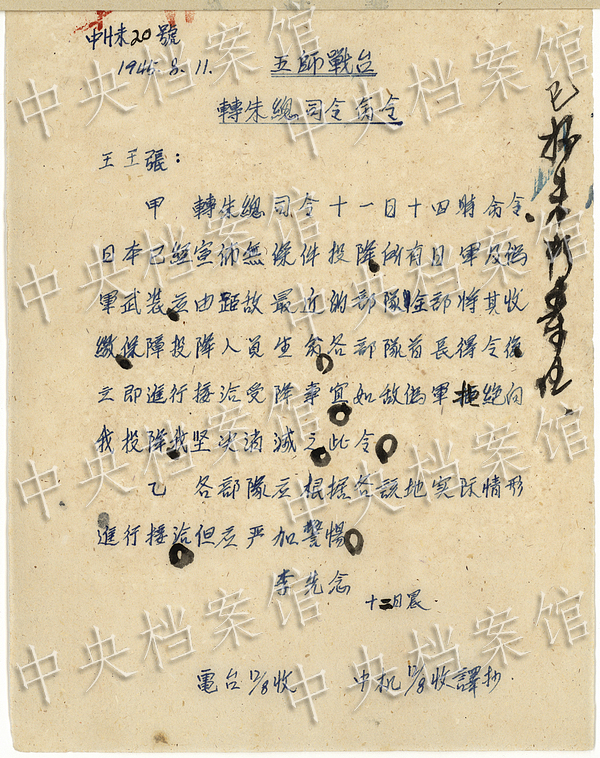 中央档案馆
中H未20號
1945.8.11.
五師戰台
轉朱總司令命令
王王張：
甲 轉朱總司令十一日十四時命令
日本已經宣佈無條件投降所有日軍及偽
軍武裝应由距敌最近的部隊全部將其收
繳保障投降人員生命各部隊首長得令後
立即進行接洽受降事宜如敌偽軍拒絕向
我投降我坚决消滅之此令
乙 各部隊应根据各該地实际情形
進行接洽但应严加警惕
李先念
十二日晨.
電台12/8收 中机12/8收譯抄.
已抄朱